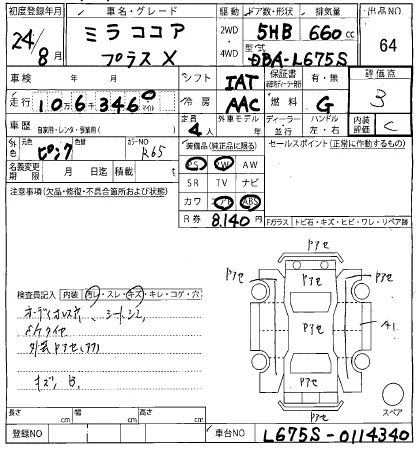 初度登録年月 車名・グレード 駆動 ドア数・形状 排気量 出品NO
24/8月 ミラココア プラスX 2WD 4WD 5HB 660cc 64
型式 DBA-L675S
車検 年 月 シフト IAT 保証書 有・無 評価点 3
走行 106千346マイル 冷房 AAC 燃料 G
車歴 自家用・レンタ・事業用( ) 定員 4人 外車モデル 年 ディーラー・並行 ハンドル 左・右 内装評価 C
外色 元色 ピンク 色替 カラーNO R65 装備品(純正品に限る) セールスポイント(正常に動作するもの)
名義変更期限 月 日迄 積載 t PS PW AW
注意事項(欠品・修復・不具合箇所および状態) SR TV ナビ
カワ エアB ABS
R券 8,140円 Fガラス トビ石・キズ・ヒビ・ワレ・リペア跡
ドアセ
ドアセ ドアセ ドアセ
ドアセ
A1
ドアセ
検査員記入 内装 汚レ・スレ・キズ・キレ・コゲ・穴
オーディオレス、シートシミ
外装ドアセ
キズ、B
スペア
長さ cm 幅 cm 高さ cm
登録NO 車台NO L675S-0114340